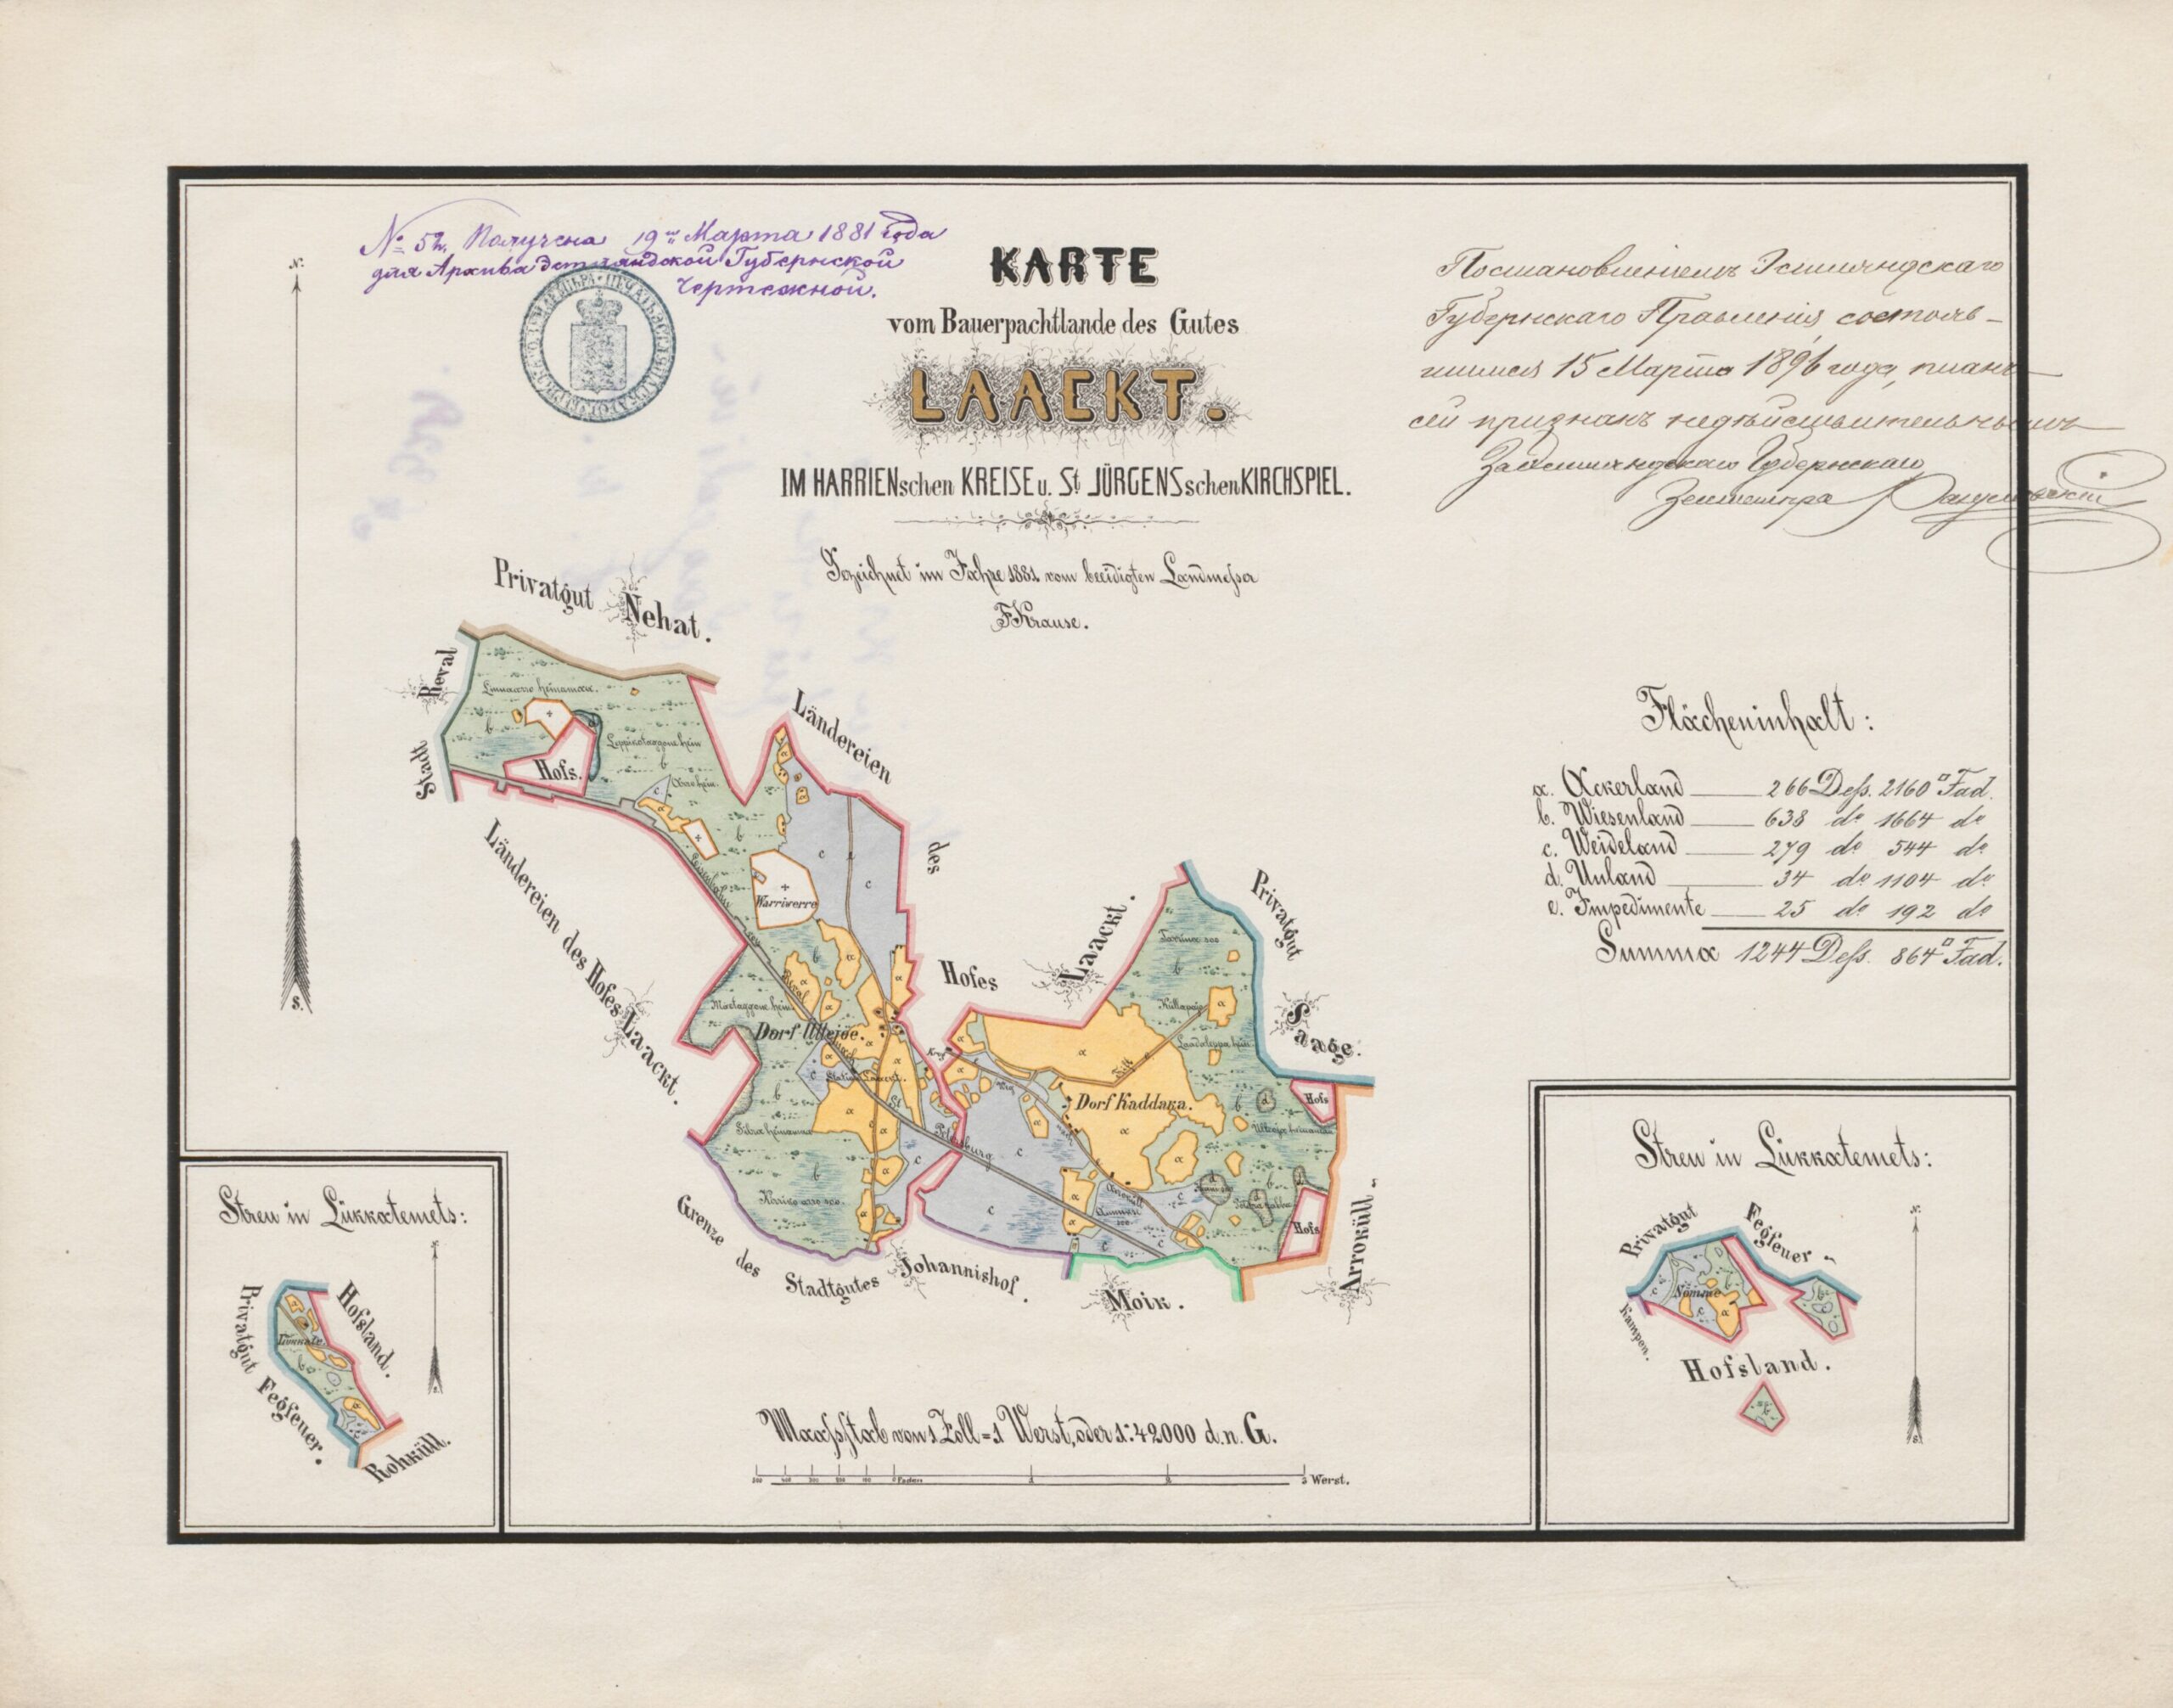 № 52. Получена 19го Марта 1881 года
для Архива Эстляндской Губернской
Чертежной.
KARTE
vom Bauerpachtlande des Gutes
LAACKT.
IM HARRIENschen KREISE u. St JÜRGENSschen KIRCHSPIEL.
Gezeichnet im Jahre 1881 vom beeidigten Landmesser
F Krause.
Постановленіемъ Эстляндскаго
Губернскаго Правленія, состояв-
шимся 15 Марта 1896 года, планъ
сей признанъ недѣйствительнымъ
За Эстляндскаго Губернскаго
Землемѣра
N.
S.
Flächeninhalt:
a. Ackerland 266 Dess. 2160 □ Fad.
b. Wiesenland 638 do 1664 do
c. Weideland 279 do 544 do
d. Unland 34 do 1104 do
e. Impedimente 25 do 192 do
Summa 1244 Dess. 864 □ Fad.
Privatgut Nehat.
Stadt Reval
Ländereien des Hofes Laackt.
Ländereien des Hofes Laackt.
Privatgut Saage.
Arroküll
Grenze des Stadtgutes Johannishof.
Moik.
Hofs.
Warriwerre
Dorf Üllejoe.
Station Laackt.
Reval
nach
St Petersburg
Krug
Dorf Kaddaka.
Hofs
Hofs
Streu in Lükkatemets:
Privatgut Fegfeuer.
Hofsland.
Rohküll.
Streu in Lükkatemets:
Privatgut Fegfeuer
Rampen.
Nömme
Hofsland.
Maassstab von 1 Zoll = 1 Werst, oder 1:42000 d. n. G.
500 400 300 200 100 0 Faden 1 2 3 Werst.